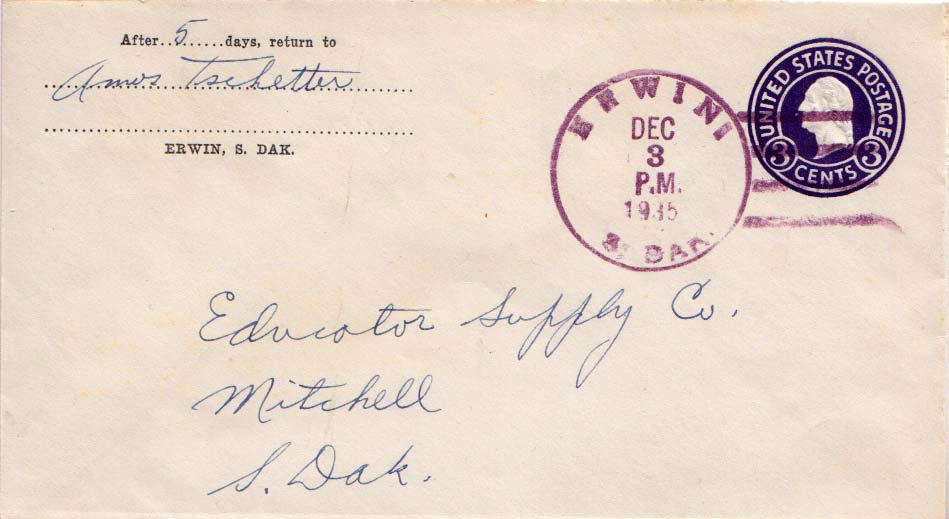 After..5......days, return to
Amos Tschetter
ERWIN, S. DAK.
ERWIN
DEC
3
P.M.
1935
S. DAK.
UNITED STATES POSTAGE
3 CENTS 3
Educator Supply Co.
Mitchell
S. Dak.